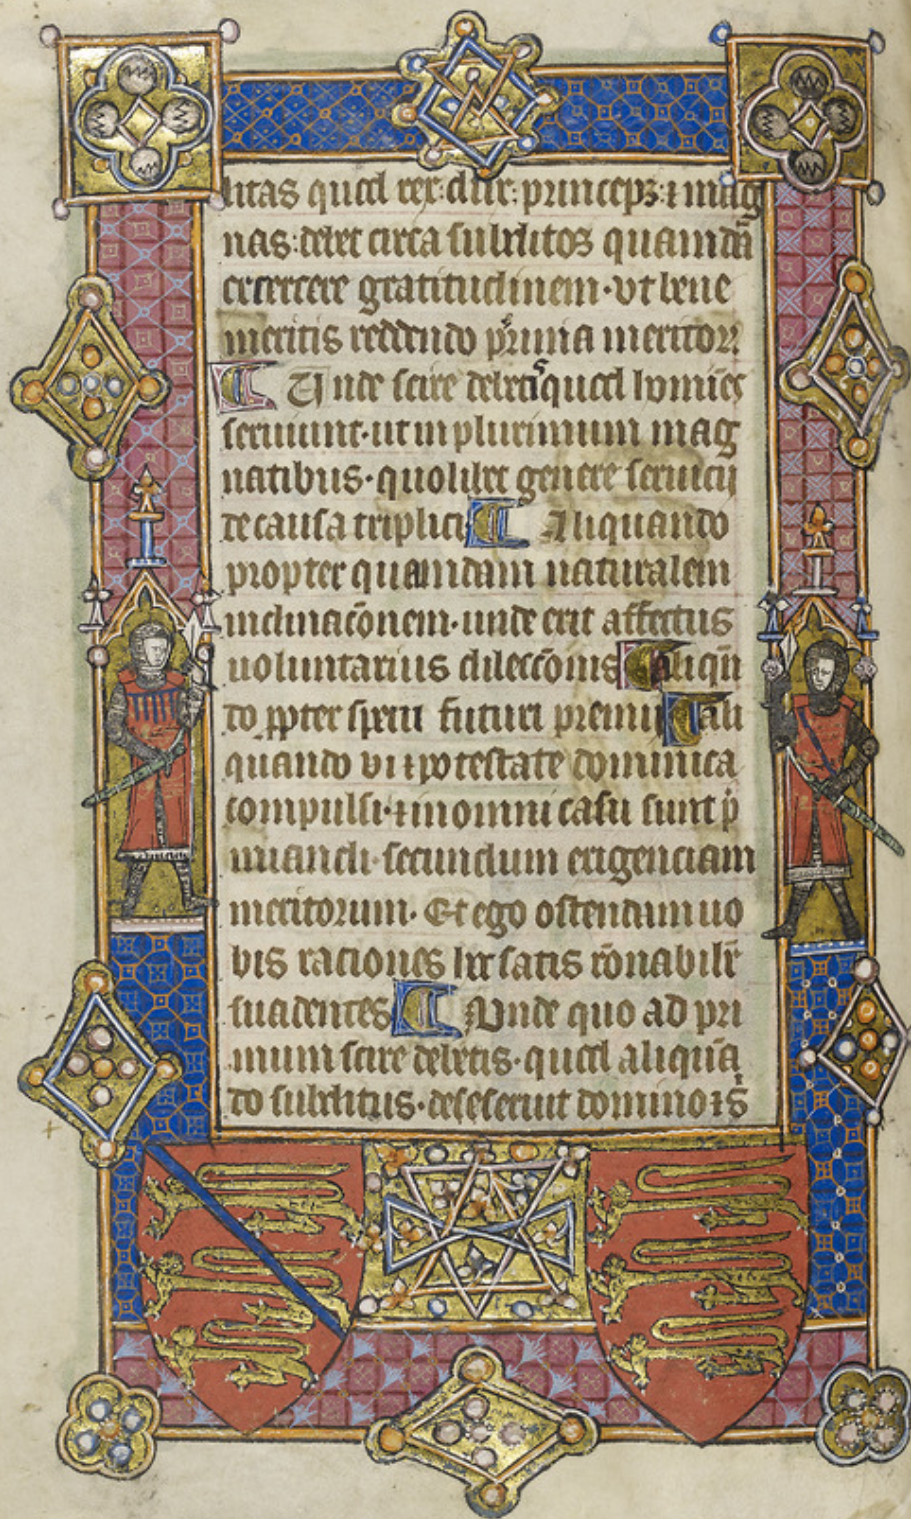 litas quod rex: dux: princeps: ⁊ mag
nas: debet circa subditos quamdā
excercere gratitudinem · vt bene
meritis reddendo p̄mia meritoꝝ
Unde scire debetis quod homīes
seruiunt · ut in plurimum mag
natibus · quolibet genere seruicij
de causa triplici Aliquando
propter quamdam naturalem
inclinacōnem · unde erit affectus
uoluntarius dileccōnis Aliqū
do ꝓpter spem futuri premii ali
quando vi ⁊ potestate dominica
compulsi · ⁊ in omni casu sunt p̄
miandi · secundum exigenciam
meritorum · Et ego ostendam uo
bis raciones hec satis rōnabilī
suadentes Vnde quo ad pri
mum scire debetis · quod aliquā
do subditus · deseruit domino